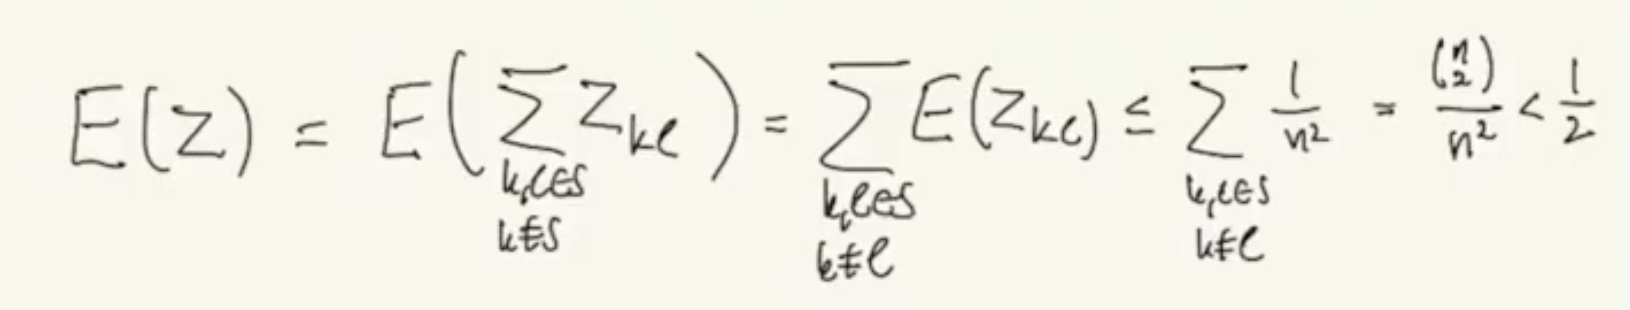 E(Z) = E( ∑_{k,l∈S k∉S} Z_{kl} ) = ∑_{k,l∈S k≠l} E(Z_{kl}) ≤ ∑_{k,l∈S k≠l} 1/n² = (n 2)/n² < 1/2